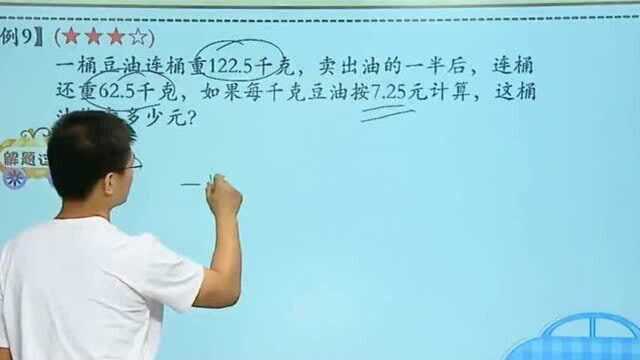 例9】(★★★☆)
一桶豆油连桶重122.5千克，卖出油的一半后，连桶
还重62.5千克，如果每千克豆油按7.25元计算，这桶
多少元？
解题
一